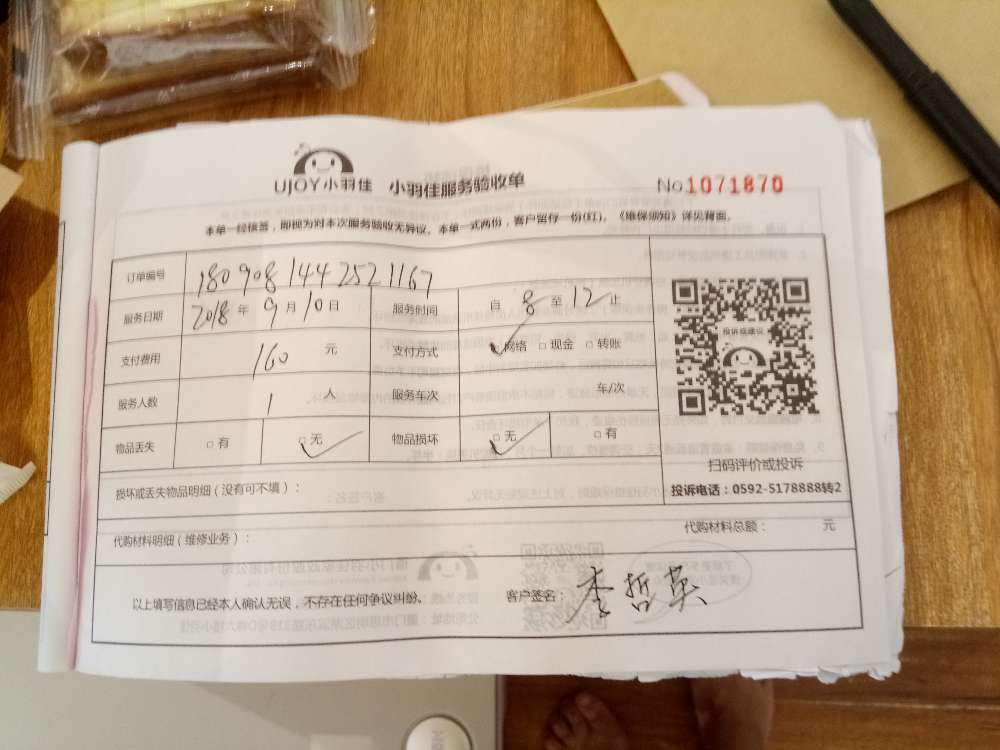 UJOY小羽佳 小羽佳服务验收单 No.1071870
本单一经接签，即视为对本次服务验收无异议。本单一式两份，客户留存一份(红)。《维保须知》详见背面。
订单编号 180908144252 1167
服务日期 2018年 9月 10日 服务时间 自 8 至 12 止
支付费用 160 元 支付方式 网络 □ 现金 □ 转账
服务人数 1 人 服务车次 车/次
物品丢失 □ 有 □ 无 物品损坏 □ 无 □ 有
投诉或建议
扫码评价或投诉
投诉电话：0592-5178888转2
损坏或丢失物品明细（没有可不填）：
代购材料明细（维修业务）： 代购材料总额： 元
以上填写信息已经本人确认无误，不存在任何争议纠纷。 客户签名： 李哲英